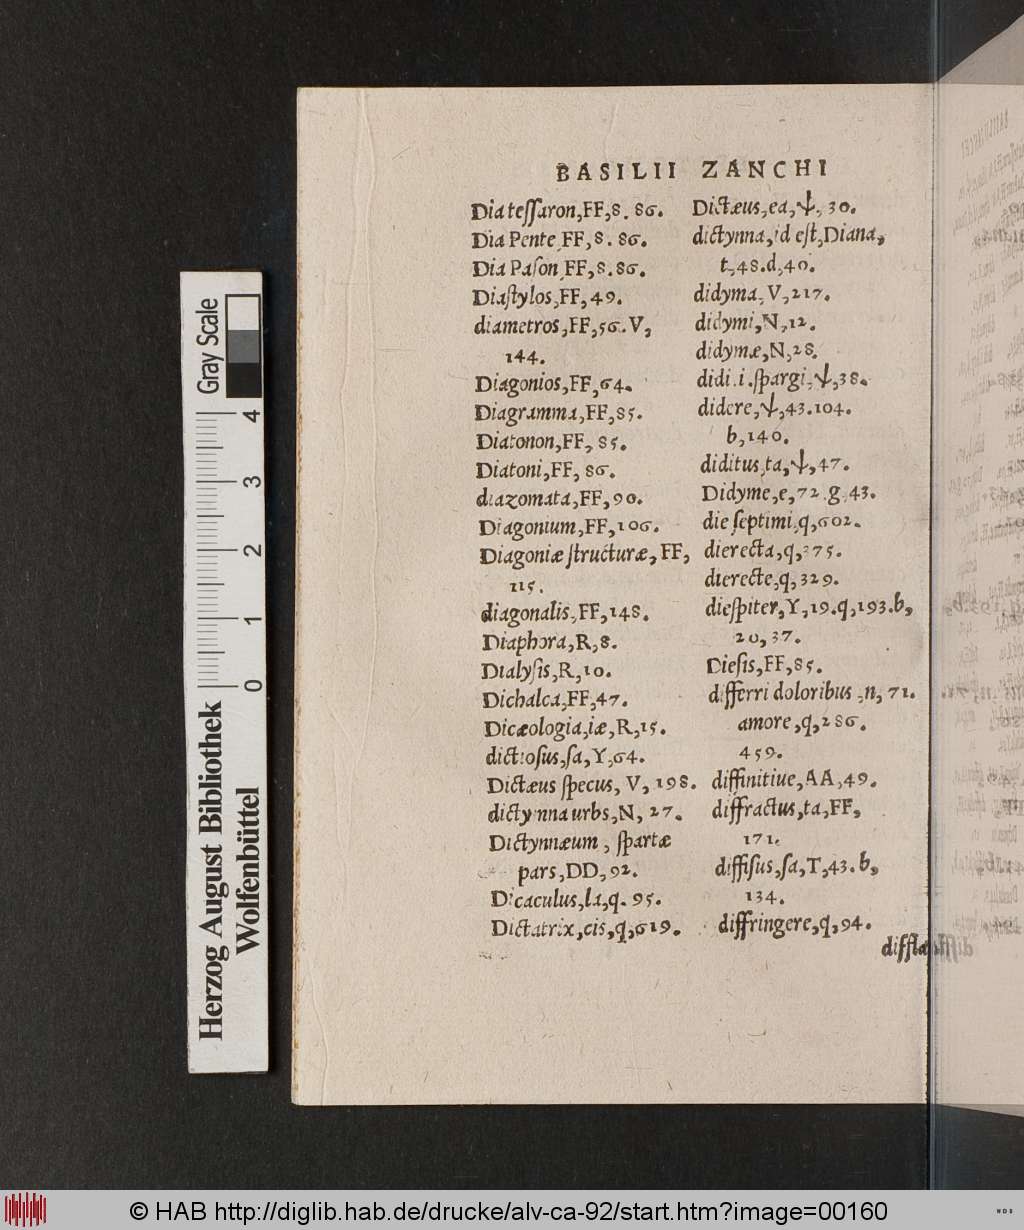 BASILII ZANCHI
Diateſſaron,FF,8.86.
Dia Pente FF,8.86.
Dia Paſon FF,8.86.
Diaſtylos,FF,49.
diametros,FF,56.V,
144.
Diagonios,FF,64.
Diagramma,FF,85.
Diatonon,FF,85.
Diatoni,FF,86.
diazomata,FF,90.
Diagonium,FF,106.
Diagoniæ ſtructuræ,FF,
115.
diagonalis,FF,148.
Diaphora,R,8.
Dialyſis,R,10.
Dichalca,FF,47.
Dicæologia,iæ,R,15.
dictioſus,ſa,Y,64.
Dictæus ſpecus, V,198.
dictynna urbs,N, 27.
Dictynnæum, ſpartæ
pars,DD,92.
Dicaculus,la,q.95.
Dictatrix,cis,q,619.
Dictæus,ea,ψ,30.
dictynna,id eſt,Diana,
t,48.d,40.
didyma,V,217.
didymi,N,12.
didymæ,N,28.
didi.i.ſpargi,ψ,38.
didere,ψ,43.104.
b,140.
diditus,ta,ψ,47.
Didyme,e,72.g.43.
die ſeptimi,q,602.
dierecta,q,375.
dierecte,q,329.
dieſpiter,Y,19.q,193.b,
20,37.
Dieſis,FF,85.
differri doloribus,n,71.
amore,q,286.
459.
diffinitiue,AA,49.
diffractus,ta,FF,
171.
diffiſus,ſa,T,43.b,
134.
diffringere,q,94.
Gray Scale
4
3
2
1
0
Herzog August Bibliothek
Wolfenbüttel
© HAB http://diglib.hab.de/drucke/alv-ca-92/start.htm?image=00160
WDB